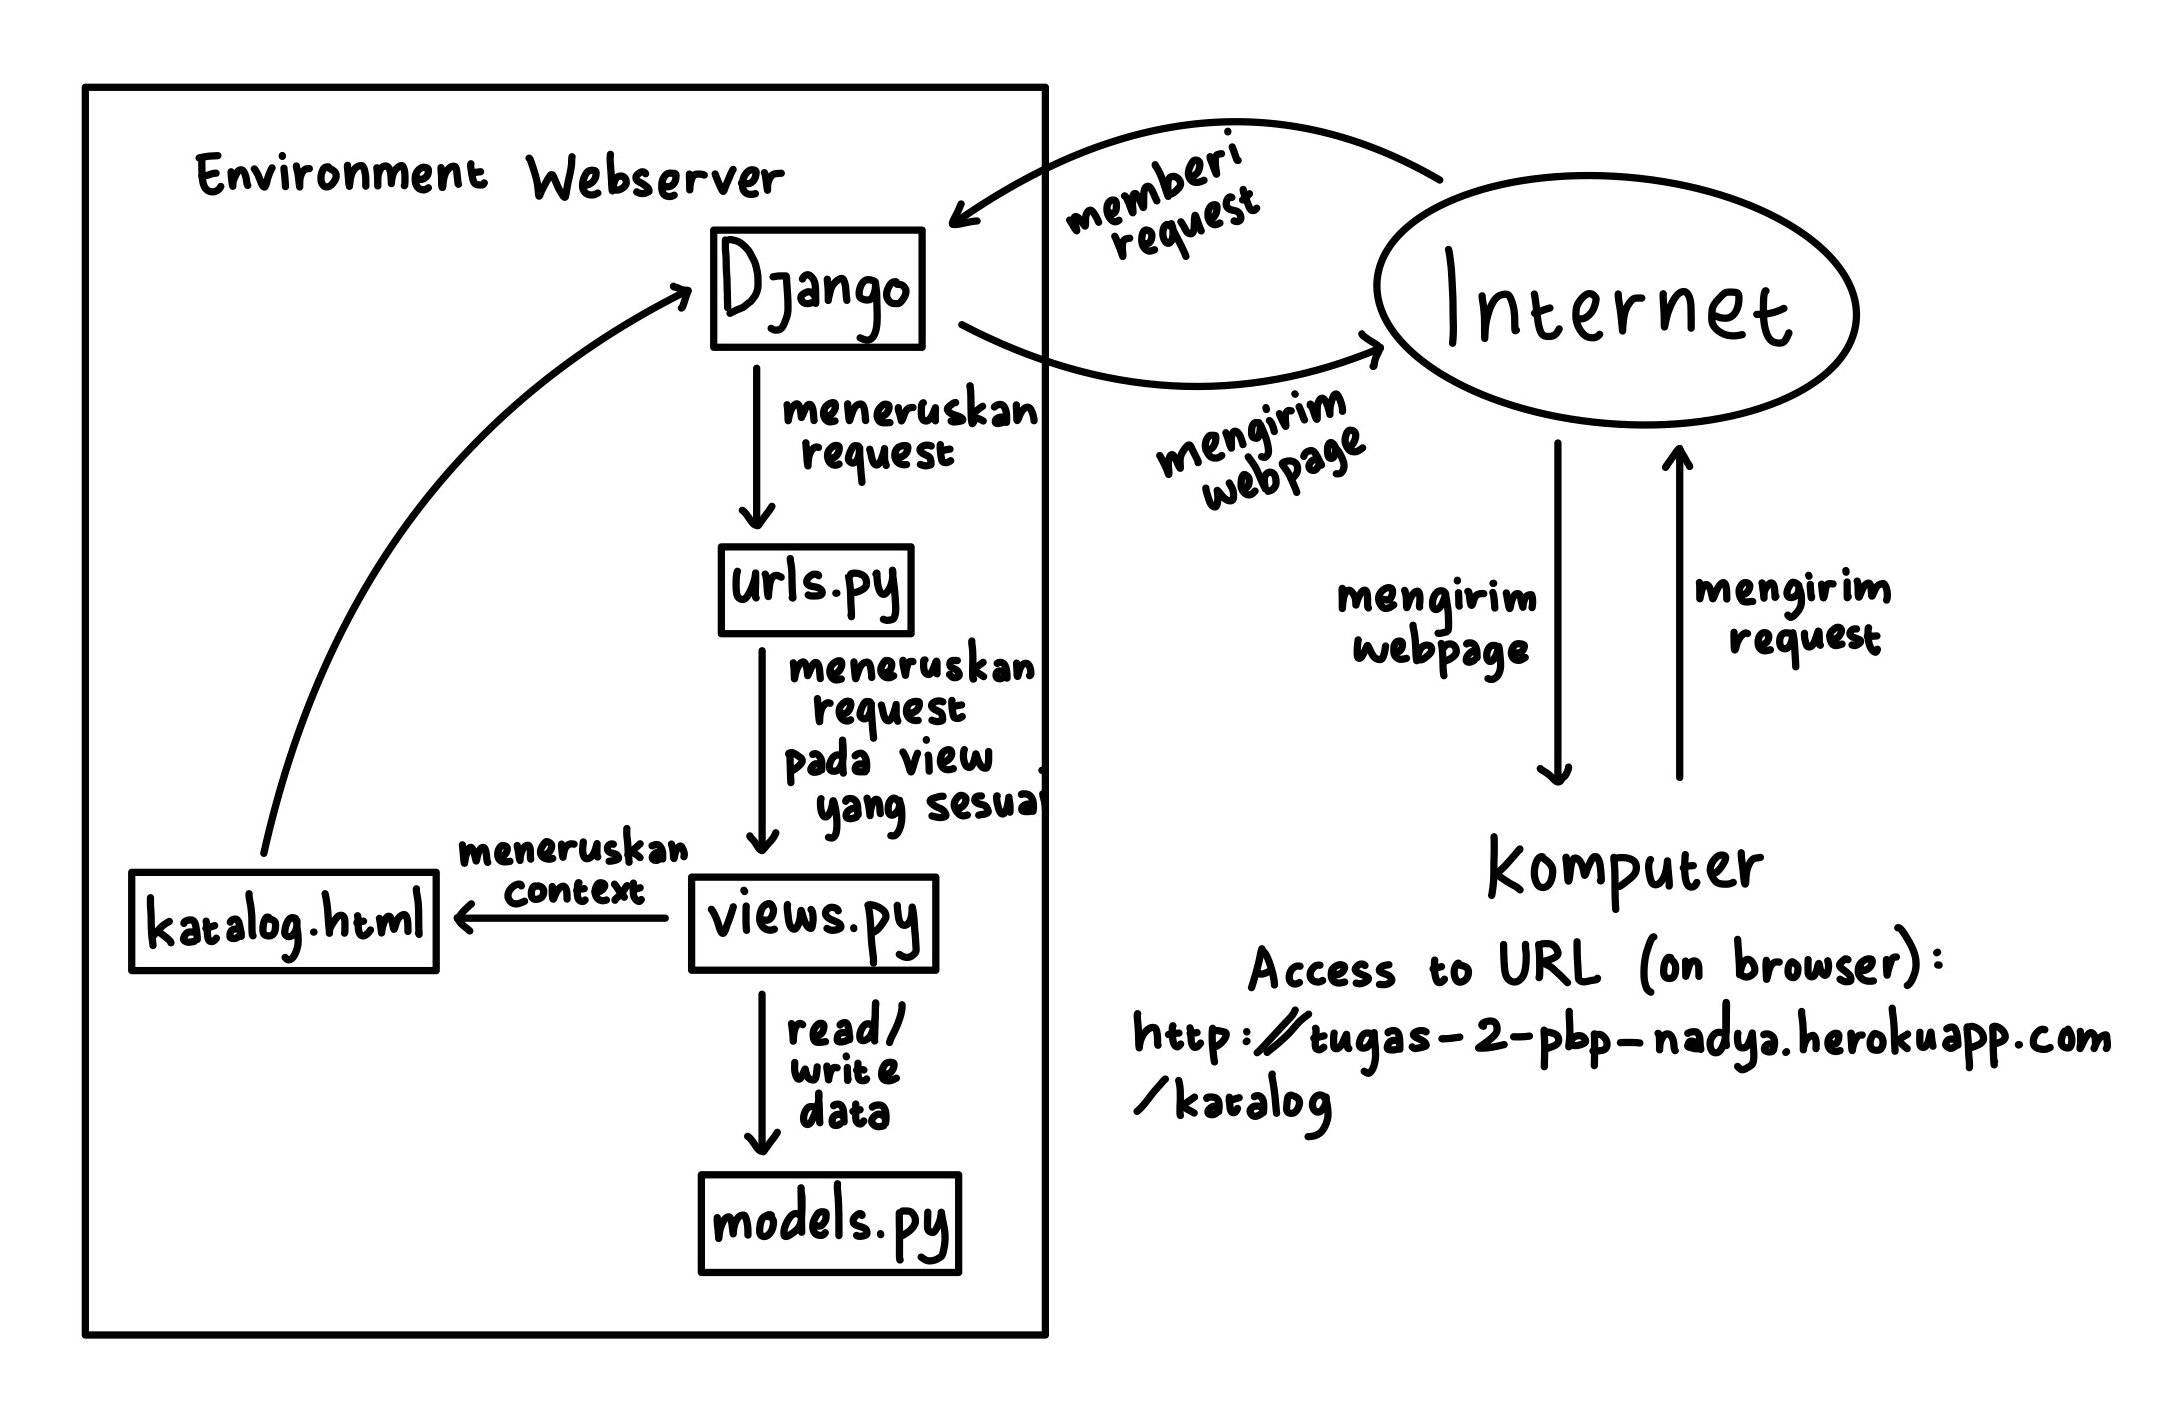 Environment Webserver
Django
meneruskan
request
urls.py
meneruskan
request
pada view
yang sesuai
views.py
meneruskan
context
katalog.html
read/
write
data
models.py
memberi
request
mengirim
webpage
Internet
mengirim
webpage
mengirim
request
Komputer
Access to URL (on browser):
http://tugas-2-pbp-nadya.herokuapp.com
/katalog